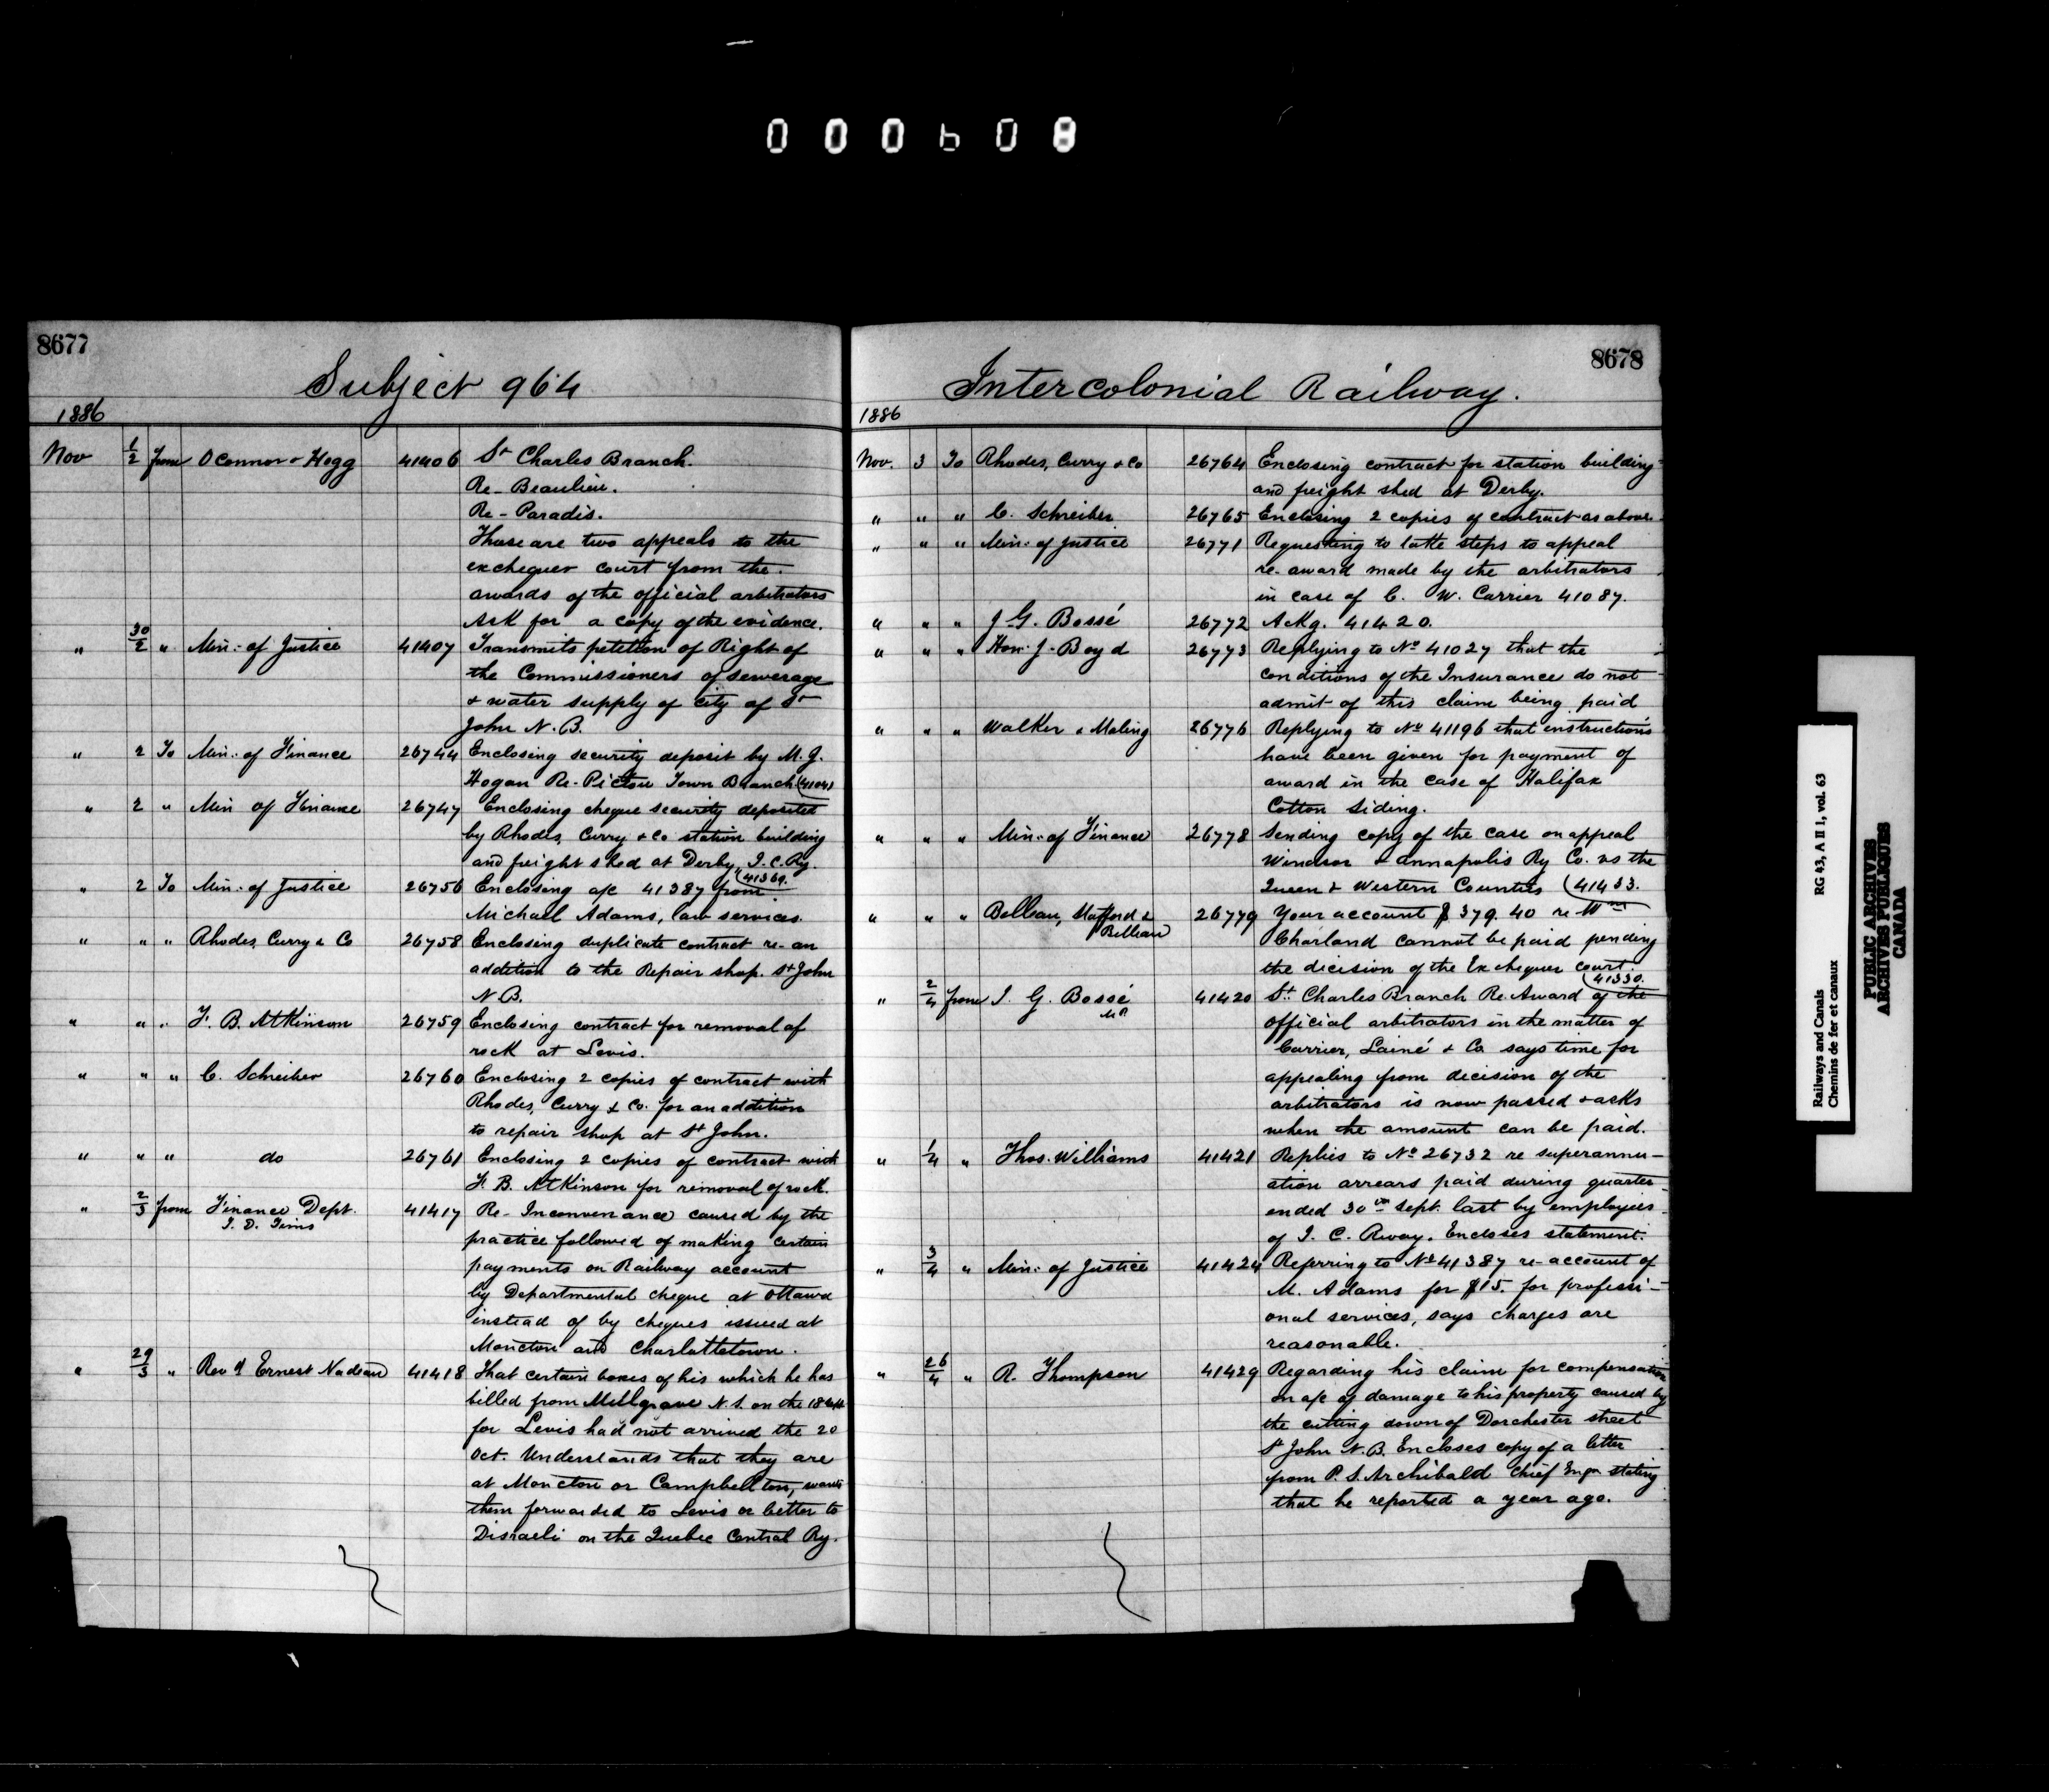 000608
8677
Subject 964
1886
Nov 1/2 from O Connor & Hogg 41406 St Charles Branch.
Re - Beaulieu.
Re - Paradis.
These are two appeals to the
exchequer court from the
awards of the official arbitrators
Ask for a copy of the evidence.
" 30/2 " Min: of Justice 41407 Transmits petition of Right of
the Commissioners of sewerage
& water supply of city of St
John N.B.
" 2 To Min: of Finance 26744 Enclosing security deposit by M. J.
Hogan Re - Pictou Town Branch (41041
" 2 " Min of Finance 26747 Enclosing cheque security deposited
by Rhodes, Curry & Co station building
and freight shed at Derby, I.C.Ry.
(41369.
" 2 To Min: of Justice 26756 Enclosing a/c 41387 from
Michael Adams, law services.
" " " Rhodes, Curry & Co 26758 Enclosing duplicate contract re - an
addition to the Repair shop. St John
N.B.
" " " F. B. Atkinson 26759 Enclosing contract for removal of
rock at Levis.
" " " C. Schreiber 26760 Enclosing 2 copies of contract with
Rhodes, Curry & Co. for an addition
to repair shop at St John.
" " " do 26761 Enclosing 2 copies of contract with
F. B. Atkinson for removal of rock.
" 2/3 from Finance Dept. 41417 Re - Inconvenance caused by the
J. D. Tims
practice followed of making certain
payments on Railway account
by Departmental cheque at Ottawa
instead of by cheques issued at
Moncton and Charlottetown.
" 29/3 " Rev d Ernest Nadeau 41418 That certain boxes of his which he has
billed from Millgrave N.S. on the 18 Sept
for Levis had not arrived the 20
Oct. Understands that they are
at Moncton or Campbellton, wants
them forwarded to Levis or better to
Disraeli on the Quebec Central Ry.
8678
Intercolonial Railway.
1886
Nov. 3 To Rhodes, Curry & Co 26764 Enclosing contract for station building
and freight shed at Derby.
" " " C. Schreiber 26765 Enclosing 2 copies of contract as above.
" " " Min: of Justice 26771 Requesting to take steps to appeal
re - award made by the arbitrators
in case of C. W. Carrier 41087.
" " " J. G. Bossé 26772 Ackg. 41420.
" " " Hon. J. Boyd 26773 Replying to No 41027 that the
conditions of the Insurance do not
admit of this claim being paid
" " " Walker & Maling 26776 Replying to No 41196 that instructions
have been given for payment of
award in the case of Halifax
Cotton Siding.
" " " Min: of Finance 26778 Sending copy of the case on appeal
Windsor & Annapolis Ry Co. vs the
Queen & Western Counties (41433.
" " " Belleau, Stafford & 26779 Your account $379.40 re Wm
Belleau
Charland cannot be paid pending
the decision of the Exchequer Court.
(41330.
" 2/4 from J. G. Bossé 41420 St. Charles Branch Re. Award of the
M.P.
official arbitrators in the matter of
Carrier, Lainé & Co says time for
appealing from decision of the
arbitrators is now passed & asks
when the amount can be paid.
" 1/4 " Thos. Williams 41421 Replies to No 26732 re superannu-
ation arrears paid during quarter
ended 30th Sept. last by employees
of I. C. Rway. Encloses statement.
" 3/4 " Min: of Justice 41424 Referring to No 41387 re - account of
M. Adams for $15. for professi-
onal services, says charges are
reasonable.
" 26/4 " R. Thompson 41429 Regarding his claim for compensation
on a/c of damage to his property caused by
the cutting down of Dorchester street
St John N.B. Encloses copy of a letter
from P. S. Archibald Chief Engr stating
that he reported a year ago.
Railways and Canals RG 43, A II 1, vol. 63
Chemins de fer et canaux
PUBLIC ARCHIVES
ARCHIVES PUBLIQUES
CANADA